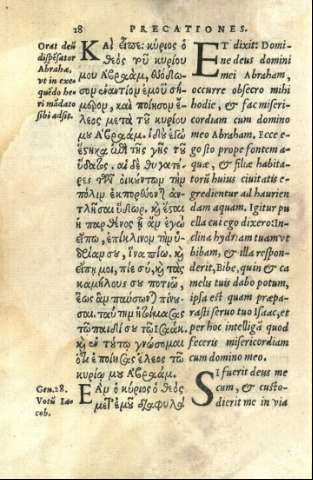 28 PRECATIONES.
Orat deũ
dispẽsator
Abrahæ,
vt in exe-
quẽdo he-
ri mãdato
sibi adsit.
Καὶ εἶπε· κύριος ὁ
θεὸς τοῦ κυρίου
μου Αβραὰμ, εὐόδω-
σον ἐναντίον ἐμοῦ σή-
μερον, καὶ ποίησον ἔ-
λεος μετὰ τοῦ κυρίου
μου Αβραάμ. ἰδοὺ ἐγὼ
ἕστηκα ἐπὶ τῆς γῆς τοῦ
ὕδατος, αἱ δὲ θυγατέ-
ρες τῶν οἰκούντων τὴν
πόλιν ἐκπορεύονται ἀν-
τλῆσαι ὕδωρ, καὶ ἔσται
ἡ παρθένος ᾗ ἂν ἐγὼ
εἴπω, ἐπίκλινον τὴν ὑ-
δρίαν σου, ἵνα πίω, καὶ
εἴπῃ μοι, πίε σὺ, καὶ τὰς
καμήλους σου ποτιῶ,
ἕως ἂν παύσωνται πίνου-
σαι. ταύτην ἡτοίμασας
τῷ παιδί σου τῷ Ισαὰκ,
καὶ ἐν τούτῳ γνώσομαι
ὅτι ἐποίησας ἔλεος τῷ
κυρίῳ μου Αβραάμ.
Et dixit: Domi-
ne deus domini
mei Abraham,
occurre obsecro mihi
hodie, & fac miseri-
cordiam cum domino
meo Abraham. Ecce e-
go sto prope fontem a-
quæ, & filiæ habita-
torũ huius ciuitatis e-
gredientur ad haurien
dam aquam. Igitur pu
ella cui ego dixero: In-
clina hydriam tuam vt
bibam, & illa respon-
derit, Bibe, quin & ca
melis tuis dabo potum,
ipsa est quam præpa-
rasti seruo tuo Isaac, et
per hoc intelligã quod
feceris misericordiam
cum domino meo.
Gen. 28.
Votũ Ia-
cob.
Εὰν ὁ κύριος ὁ θεὸς
μετ' ἐμοῦ διαφυλα
Si fuerit deus me
cum, & custo-
dierit me in via